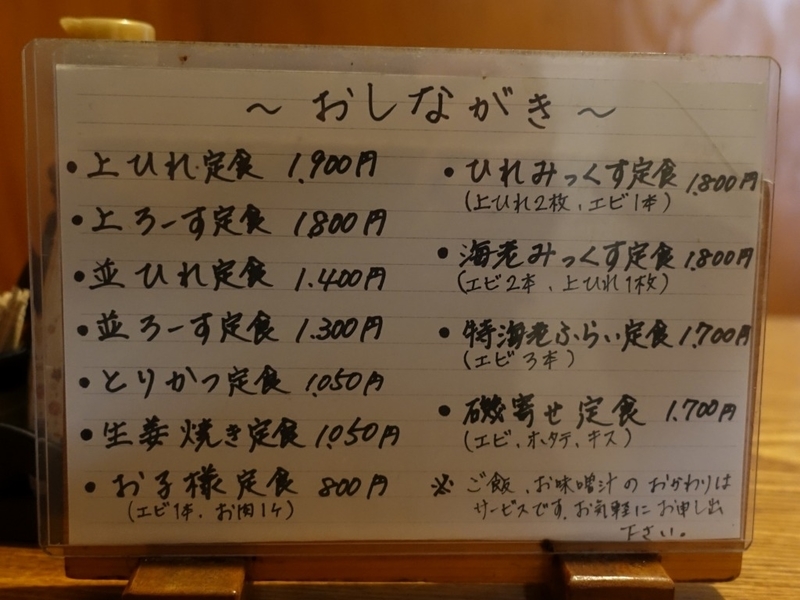 ～ おしながき ～
• 上ひれ定食 1,900円
• 上ろーす定食 1,800円
• 並ひれ定食 1.400円
• 並ろーす定食 1.300円
• とりかつ定食 1,050円
• 生姜焼き定食 1,050円
• お子様定食 800円
(エビ1本、お肉1ヶ)
• ひれみっくす定食 1,800円
(上ひれ2枚、エビ1本)
• 海老みっくす定食 1,800円
(エビ2本、上ひれ1枚)
• 特海老ふらい定食 1,700円
(エビ3本)
• 磯寄せ定食 1.700円
(エビ、ホタテ、キス)
※ ご飯、お味噌汁のおかわりは
サービスです。お気軽にお申し出
下さい。